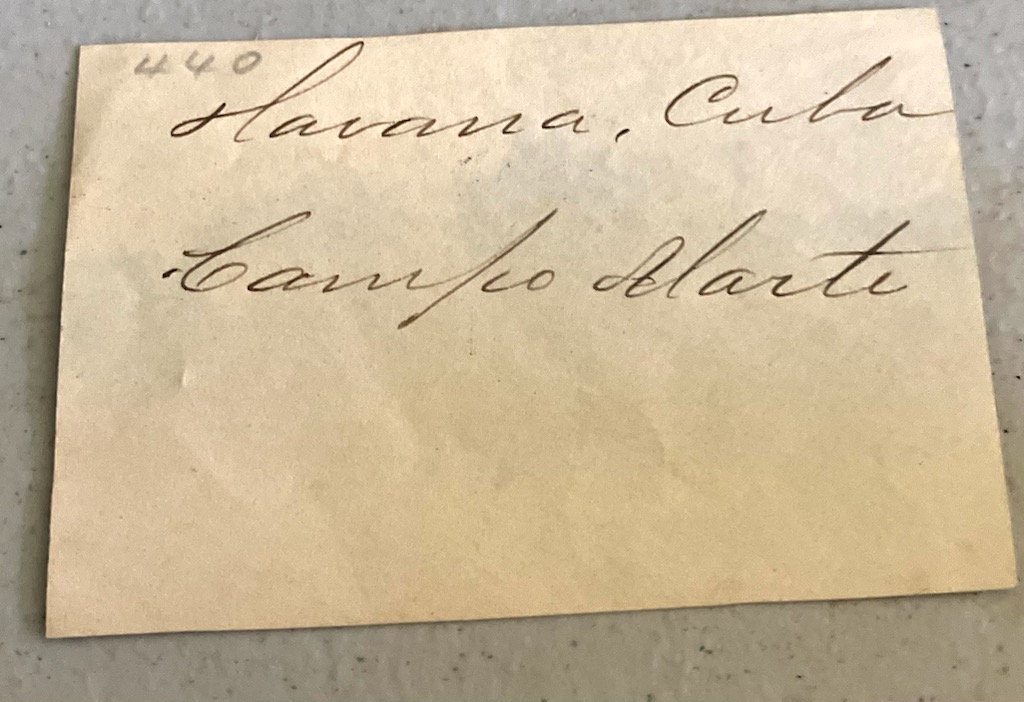 440
Havana, Cuba
Campo Marte